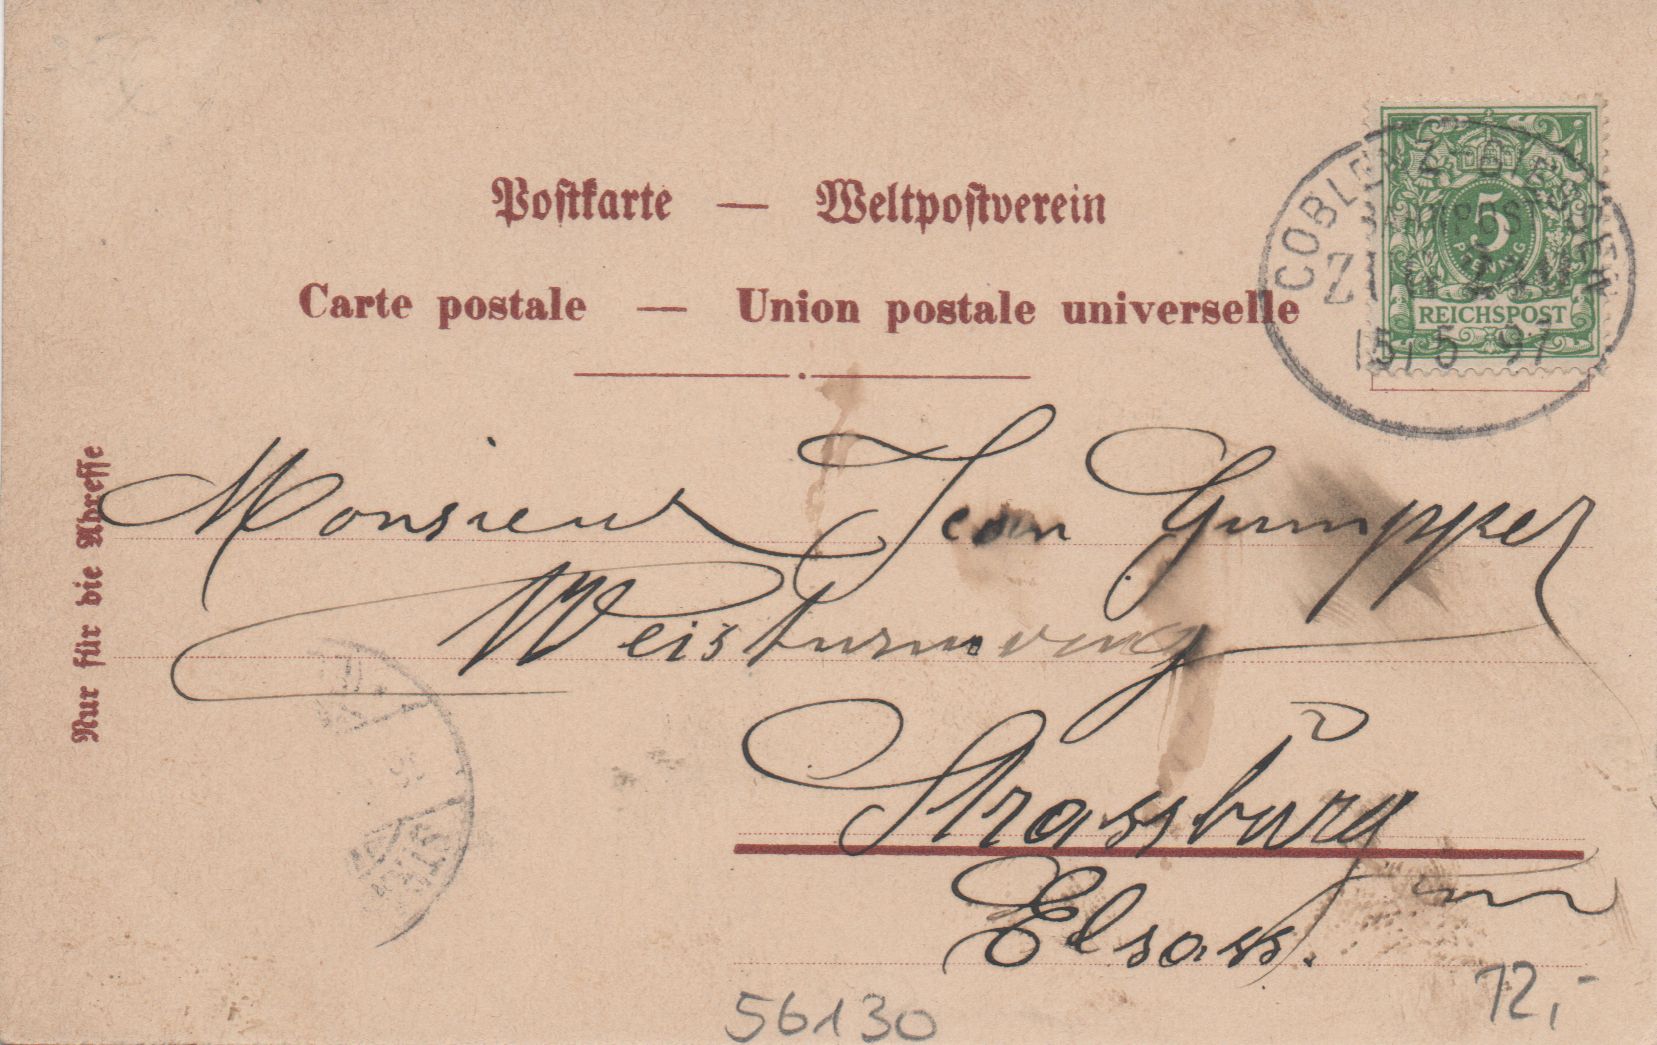 Postkarte — Weltpostverein
Carte postale — Union postale universelle
Nur für die Adresse
5
PFENNIG
REICHSPOST
COBLENZ-GIESSEN
BAHNPOST
15/5 97
Monsieur Jean Gumpper
Weisturmring
Strassburg
im
Elsass.
56130
12,-